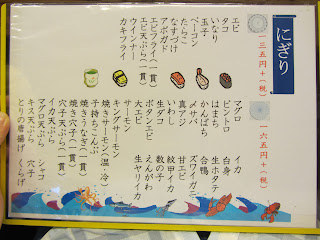 にぎり
一三五円+(税)
エビ
タコ
いなり
玉子
ベーコン
たらこ
なすづけ
アボガド
エビフライ(一貫)
エビ天ぷら(一貫)
ウインナー
カキフライ
一六五円+(税)
マグロ
ビントロ
はまち
かんぱち
〆サバ
真アジ
いわし
生ダコ
大エビ
ボタンエビ
サーモン
キングサーモン
焼きサーモン(温・冷)
子持ちこんぶ
焼きうなぎ(一貫)
焼き穴子(一貫)
穴子天ぷら(一貫)
イカ天ぷら
マグロ天ぷら
キス天ぷら
とりの唐揚げ
イカ
白身
生ホタテ
合鴨
ズワイガニ
甘エビ
紋甲イカ
数の子
えんがわ
生ヤリイカ
シャコ
穴子
くらげ